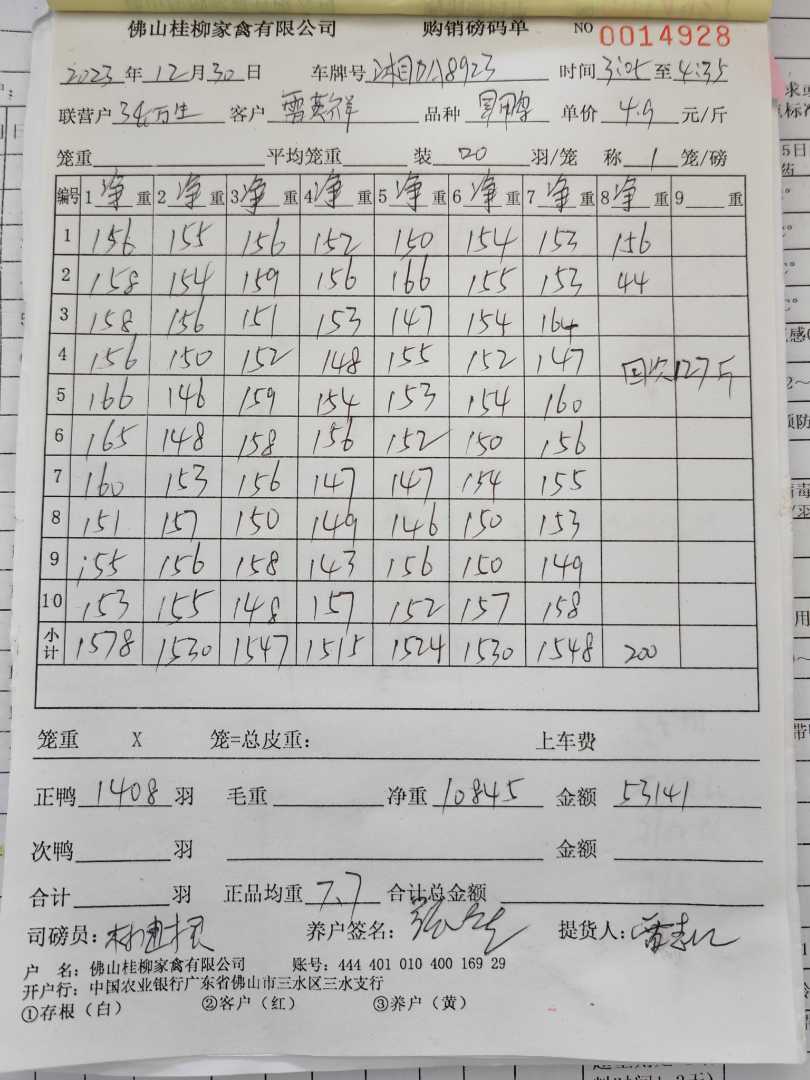 佛山桂柳家禽有限公司 购销磅码单 NO 0014928
2023 年 12 月 30 日 车牌号 湘 8923 时间 3:05 至 4:35
联营户 张万生 客户 雷英祥 品种 单价 4.9 元/斤
笼重 平均笼重 装 20 羽/笼 称 1 笼/磅
编号 1 净 重 2 净 重 3 净 重 4 净 重 5 净 重 6 净 重 7 净 重 8 净 重 9 重
1 156 155 156 152 150 154 153 156
2 158 154 159 156 166 155 153 44
3 158 156 151 153 147 154 164
4 156 150 152 148 155 152 147 回次127斤
5 166 146 159 154 153 154 160
6 165 148 158 156 152 150 156
7 160 153 156 147 147 154 155
8 151 157 150 149 146 150 153
9 155 156 158 143 156 150 149
10 153 155 148 157 152 157 158
小计 1578 1530 1547 1515 1524 1530 1548 200
笼重 X 笼=总皮重: 上车费
正鸭 1408 羽 毛重 净重 10845 金额 53141
次鸭 羽 金额
合计 羽 正品均重 7.7 合计总金额
司磅员: 养户签名: 提货人:
户 名: 佛山桂柳家禽有限公司 账号: 444 401 010 400 169 29
开户行: 中国农业银行广东省佛山市三水区三水支行
①存根(白) ②客户(红) ③养户(黄)